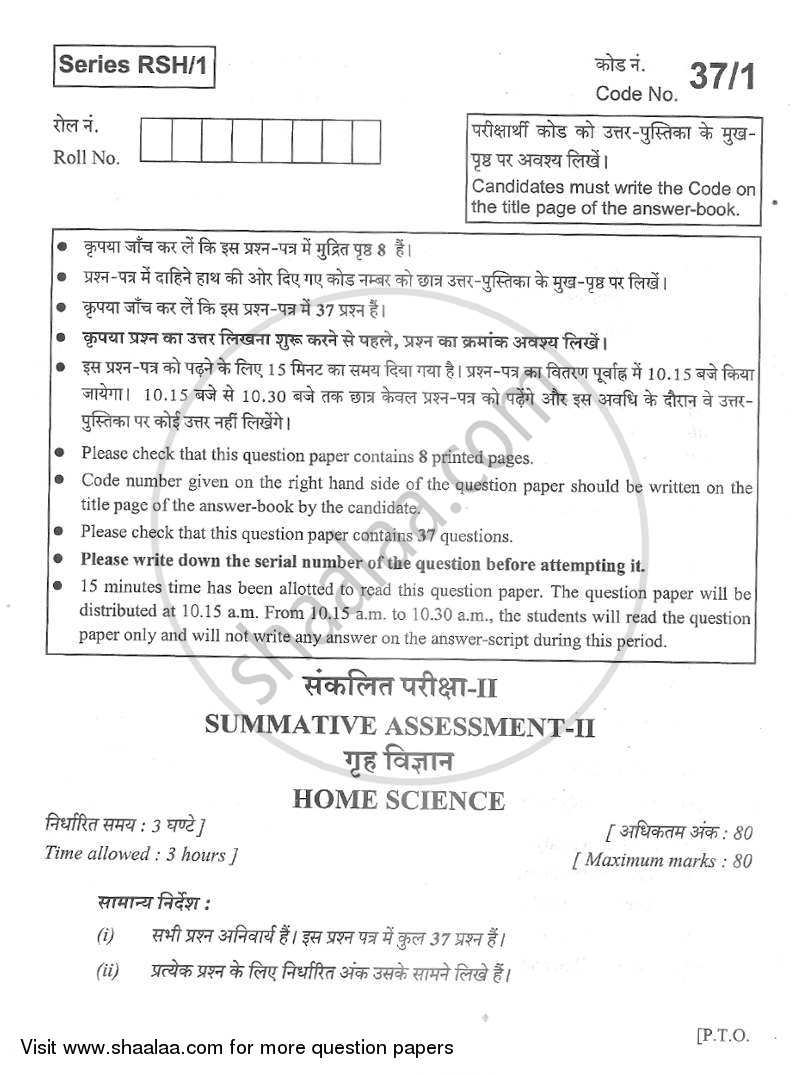 Series RSH/1
कोड नं. 37/1
Code No.
रोल नं.
Roll No.
परीक्षार्थी कोड को उत्तर-पुस्तिका के मुख-
पृष्ठ पर अवश्य लिखें।
Candidates must write the Code on
the title page of the answer-book.
• कृपया जाँच कर लें कि इस प्रश्न-पत्र में मुद्रित पृष्ठ 8 हैं।
• प्रश्न-पत्र में दाहिने हाथ की ओर दिए गए कोड नम्बर को छात्र उत्तर-पुस्तिका के मुख-पृष्ठ पर लिखें।
• कृपया जाँच कर लें कि इस प्रश्न-पत्र में 37 प्रश्न हैं।
• कृपया प्रश्न का उत्तर लिखना शुरू करने से पहले, प्रश्न का क्रमांक अवश्य लिखें।
• इस प्रश्न-पत्र को पढ़ने के लिए 15 मिनट का समय दिया गया है। प्रश्न-पत्र का वितरण पूर्वाह्न में 10.15 बजे किया
जायेगा। 10.15 बजे से 10.30 बजे तक छात्र केवल प्रश्न-पत्र को पढ़ेंगे और इस अवधि के दौरान वे उत्तर-
पुस्तिका पर कोई उत्तर नहीं लिखेंगे।
• Please check that this question paper contains 8 printed pages.
• Code number given on the right hand side of the question paper should be written on the
title page of the answer-book by the candidate.
• Please check that this question paper contains 37 questions.
• Please write down the serial number of the question before attempting it.
• 15 minutes time has been allotted to read this question paper. The question paper will be
distributed at 10.15 a.m. From 10.15 a.m. to 10.30 a.m., the students will read the question
paper only and will not write any answer on the answer-script during this period.
shaalaa.com
संकलित परीक्षा-II
SUMMATIVE ASSESSMENT-II
गृह विज्ञान
HOME SCIENCE
निर्धारित समय : 3 घण्टे ]
[ अधिकतम अंक : 80
Time allowed : 3 hours ]
[ Maximum marks : 80
सामान्य निर्देश :
(i) सभी प्रश्न अनिवार्य हैं। इस प्रश्न पत्र में कुल 37 प्रश्न हैं।
(ii) प्रत्येक प्रश्न के लिए निर्धारित अंक उसके सामने लिखे हैं।
[P.T.O.
Visit www.shaalaa.com for more question papers